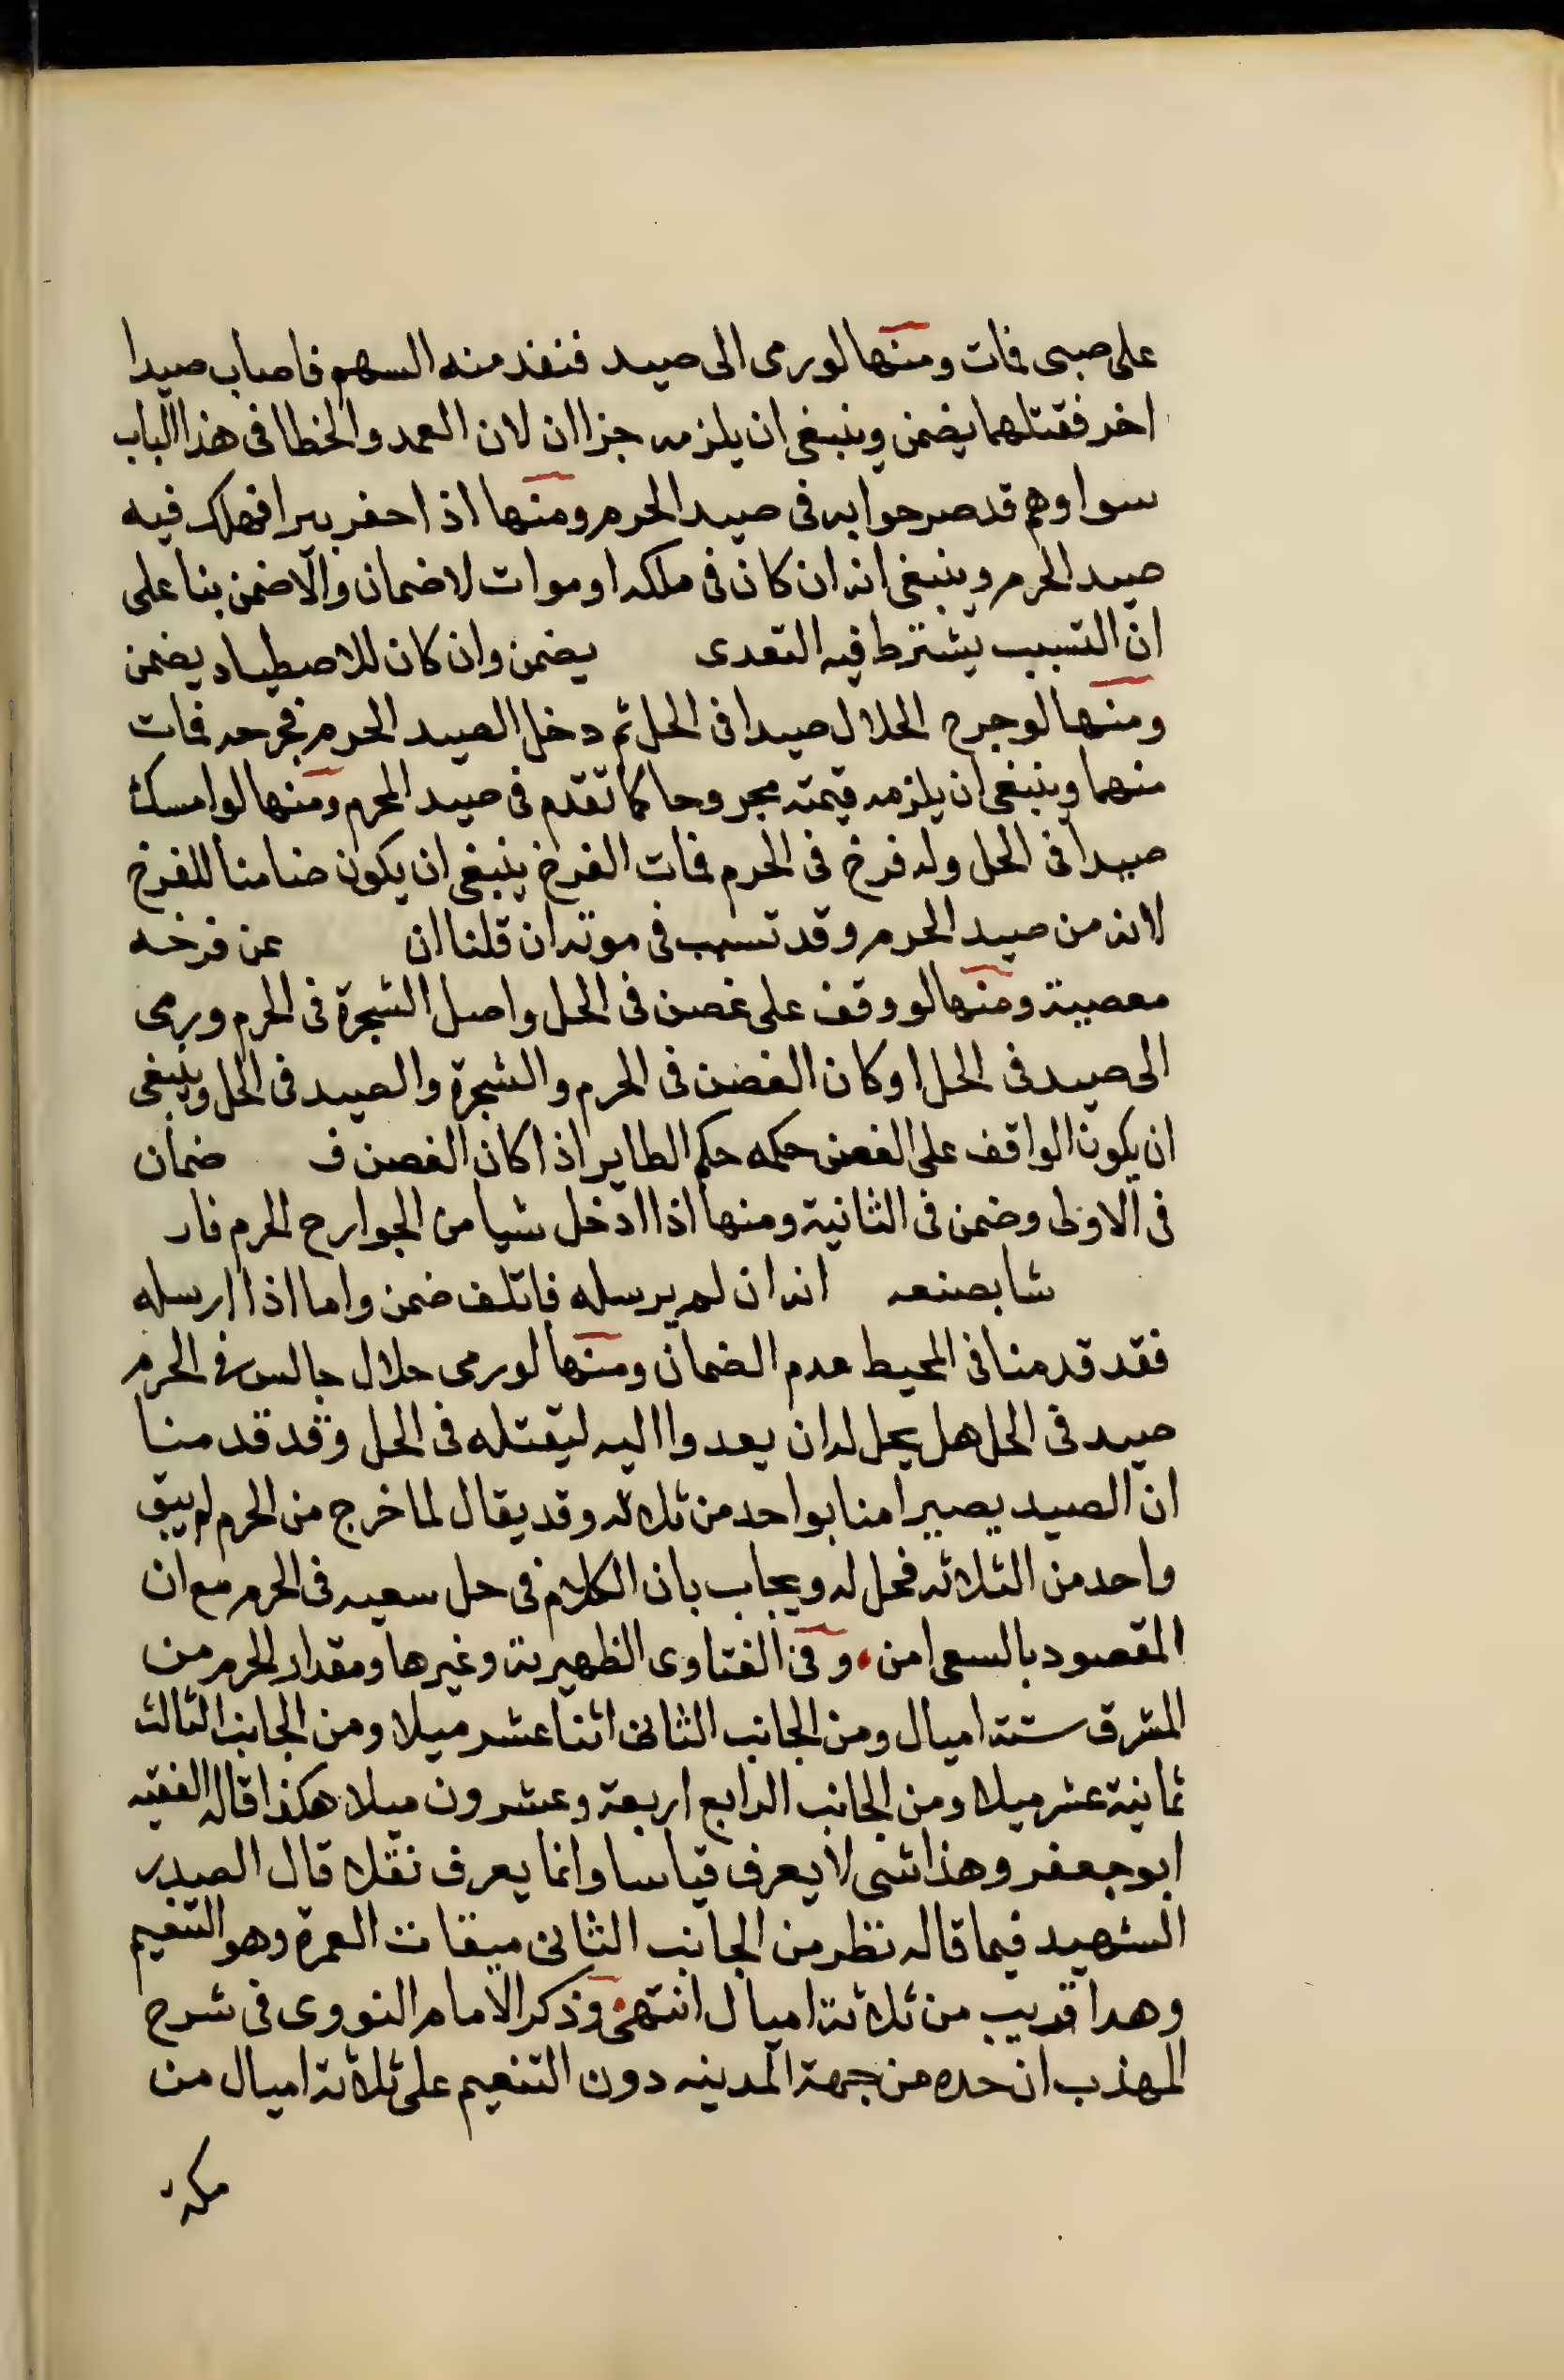 على صبى فمات ومنها لو رمى الى صيد فنفذ منه السهم فاصاب صيدا
اخر فقتلهما يضمن وينبغى ان يلزمه جزاان لان العمد والخطا فى هذا الباب
سوا وهم قد صرحوا به فى صيد الحرم ومنها اذا حفر بيرا فهلك فيه
صيد الحرم وينبغى انه ان كان فى ملكه او موات لا ضمان والا ضمن بنا على
ان التسبب يشترط فيه التعدى يضمن وان كان للاصطياد يضمن
ومنها لو جرح الحلال صيدا فى الحل ثم دخل الصيد الحرم فجرحه فمات
منهما وينبغى ان يلزمه قيمته مجروحا كما تقدم فى صيد المحرم ومنها لو امسك
صيدا فى الحل وله فرخ فى الحرم فمات الفرخ ينبغى ان يكون ضامنا للفرخ
لانه من صيد الحرم وقد تسبب فى موته ان قلنا ان عن فرخه
معصية ومنها لو وقف على غصن فى الحل واصل الشجرة فى الحرم ورمى
الى صيد فى الحل او كان الغصن فى الحرم والشجرة والصيد فى الحل وينبغى
ان يكون الواقف على الغصن حكمه حكم الطاير اذا كان الغصن ف ضمان
فى الاولى وضمن فى الثانية ومنها اذا ادخل شيا من الجوارح الحرم فا
شا بصنعه انه ان لم يرسله فاتلف ضمن واما اذا ارسله
فقد قدمنا فى المحيط عدم الضمان ومنها لو رمى حلال جالس فى الحرم
صيد فى الحل هل يحل له ان يعدوا اليه ليقتله فى الحل وقد قدمنا
ان الصيد يصير امنا بواحد من ثلاثه وقد يقال لما خرج من الحرم لم يبق
واحد من الثلاثه فحل له ويجاب بان الكلام فى حل سعيه فى الحرم مع ان
المقصود بالسعى امن وفى الفتاوى الظهيرية وغيرها ومقدار الحرم من
المشرق ستة اميال ومن الجانب الثانى اثنا عشر ميلا ومن الجانب الثالث
ثمانية عشر ميلا ومن الجانب الرابع اربعة وعشرون ميلا هكذا قاله الفقيه
ابو جعفر وهذا شى لا يعرف قياسا وانما يعرف نقلا قال الصدر
الشهيد فيما قاله نظر من الجانب الثانى ميقات العمرة وهو التنعيم
وهدا قريب من ثلاثة اميال انتهى وذكر الامام النووى فى شرح
المهذب ان حده من جهة المدينه دون التنعيم على ثلاثة اميال من
مكة